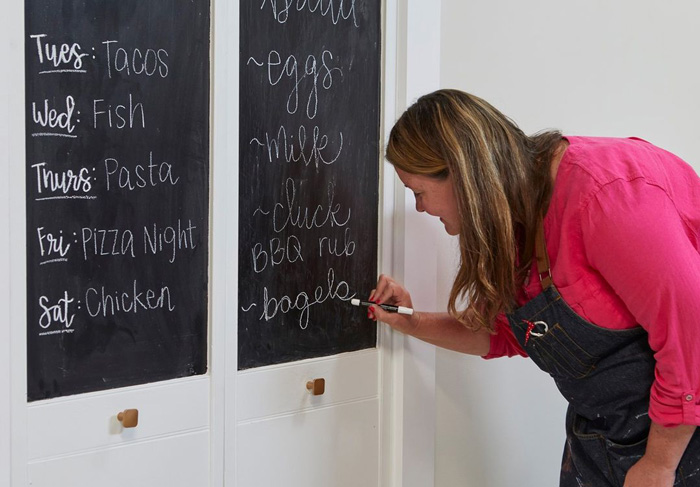 Tues: Tacos
Wed: Fish
Thurs: Pasta
Fri: Pizza Night
Sat: Chicken
~eggs~
~Milk~
~cluck
BBQ rub
~bagels